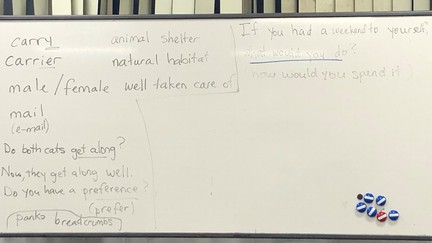 carry
carrier
male/female
mail
(e-mail)
Do both cats get along?
Now, they get along well.
Do you have a preference?
(prefer)
panko breadcrumbs
animal shelter
natural habitat
well taken care of
If you had a weekend to yourself,
what would you do?
how would you spend it)